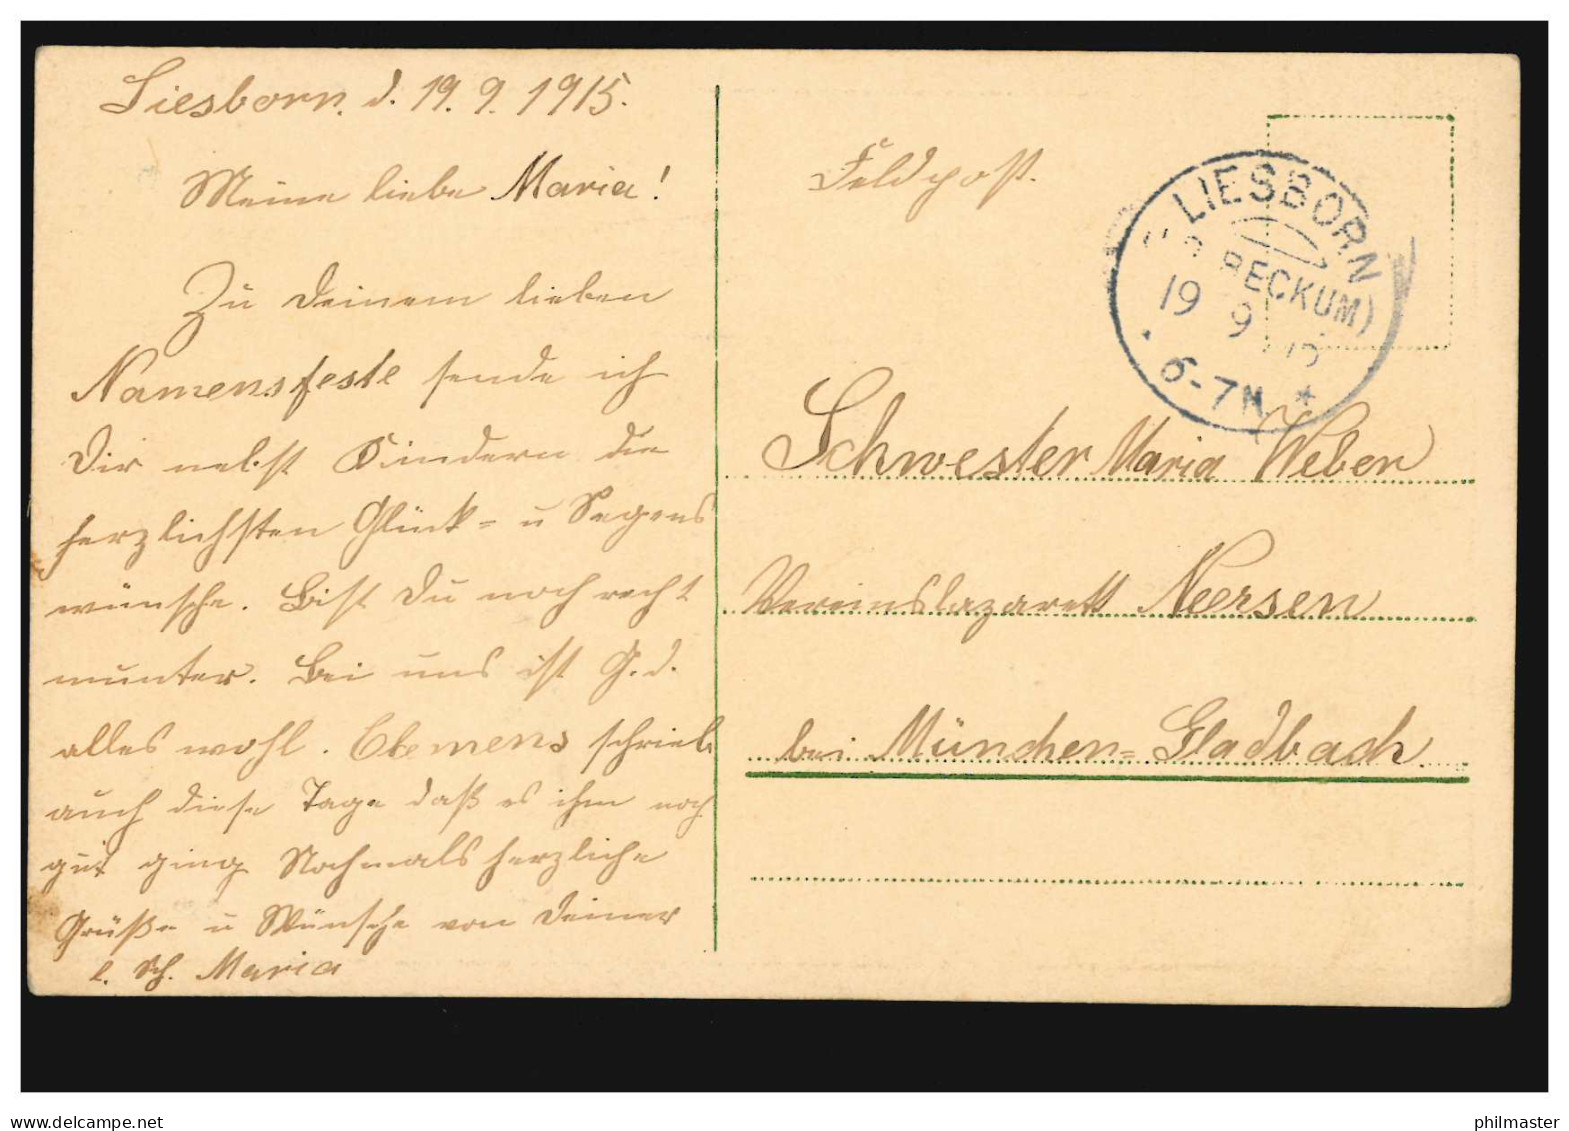 Liesborn. d. 19. 9. 1915.
Meine liebe Maria!
Zu Deinem lieben
Namensfeste sende ich
Dir nebst Kindern die
herzlichsten Glück- u Segens
wünsche. Bist Du noch recht
munter. Bei uns ist G. d.
alles wohl. Clemens schrieb
auch diese Tage daß es ihm noch
gut ging Nochmals herzliche
Grüße u Wünsche von Deiner
l. Sch. Maria
Feldpost.
LIESBORN
BECKUM)
19 9 15
6-7N
Schwester Maria Weber
Vereinslazarett Neersen
bei München-Gladbach
www.delcampe.net
philmaster